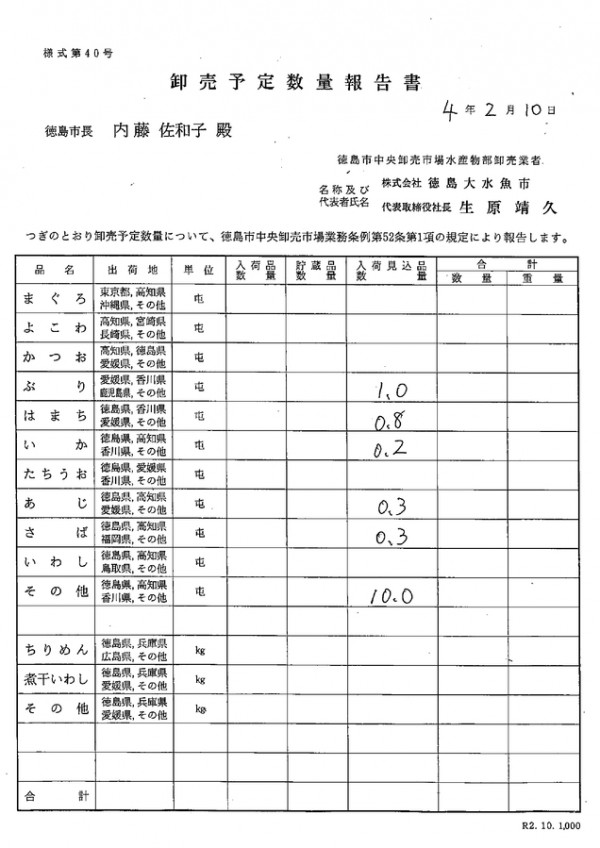 様式第40号
卸売予定数量報告書
4年2月10日
徳島市長 内藤 佐和子 殿
徳島市中央卸売市場水産物部卸売業者
名称及び 株式会社 徳島大水魚市
代表者氏名 代表取締役社長 生原靖久
つぎのとおり卸売予定数量について、徳島市中央卸売市場業務条例第52条第1項の規定により報告します。
品名 出荷地 単位 入荷品数量 貯蔵品数量 入荷見込品数量 合計 数量 重量
まぐろ 東京都, 高知県 沖縄県, その他 屯
よこわ 高知県, 宮崎県 長崎県, その他 屯
かつお 高知県, 徳島県 愛媛県, その他 屯
ぶり 愛媛県, 香川県 鹿児島県, その他 屯 1.0
はまち 徳島県, 香川県 愛媛県, その他 屯 0.8
いか 徳島県, 高知県 香川県, その他 屯 0.2
たちうお 徳島県, 愛媛県 香川県, その他 屯
あじ 徳島県, 高知県 愛媛県, その他 屯 0.3
さば 徳島県, 高知県 福岡県, その他 屯 0.3
いわし 徳島県, 高知県 鳥取県, その他 屯
その他 徳島県, 高知県 香川県, その他 屯 10.0
ちりめん 徳島県, 兵庫県 広島県, その他 kg
煮干いわし 徳島県, 兵庫県 愛媛県, その他 kg
その他 徳島県, 兵庫県 愛媛県, その他 kg
合計
R2. 10. 1,000